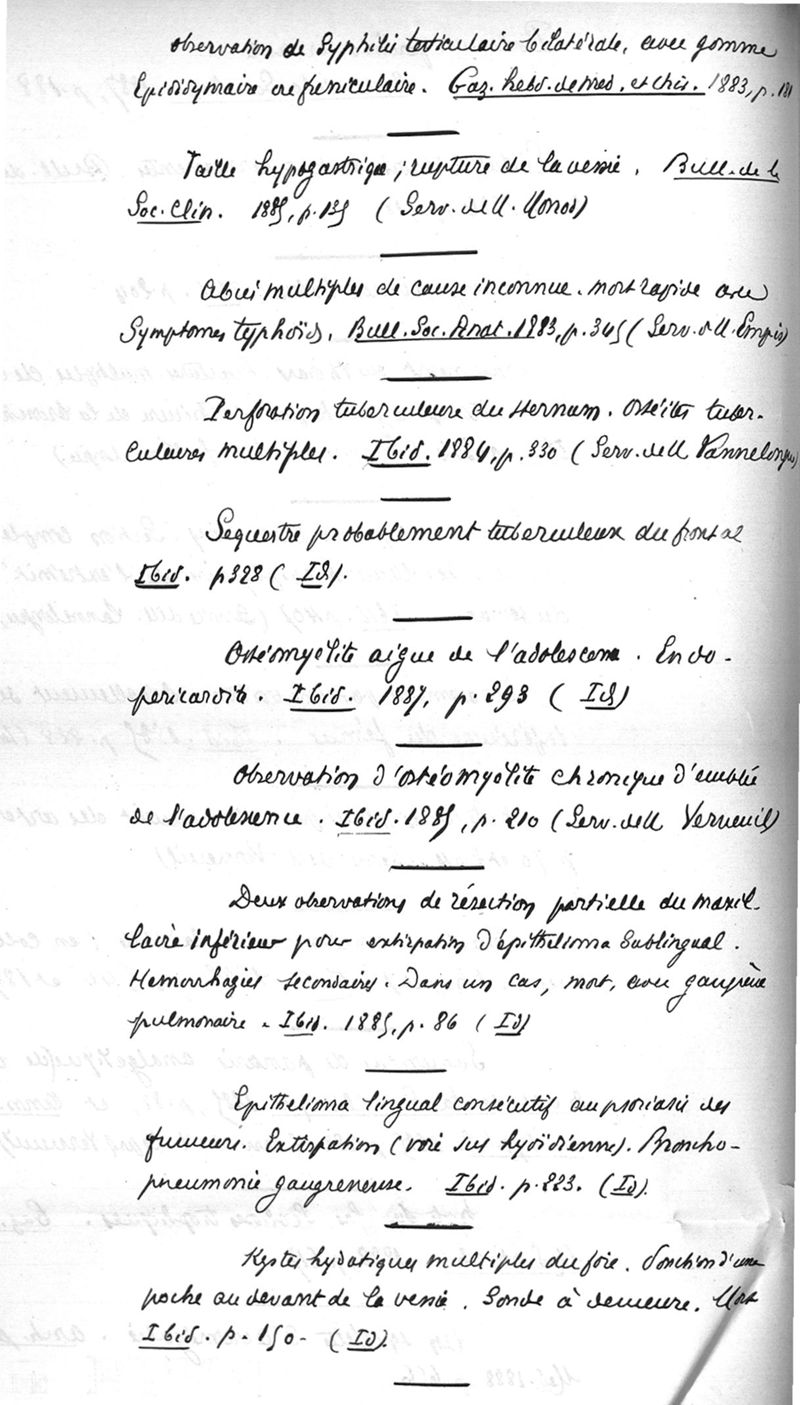 Observation de Syphilis testiculaire bilatérale, avec gomme
Epididymaire ou funiculaire. Gaz. hebd. de med. et chir. 1883, p. 181
Taille hypogastrique ; rupture de la vessie. Bull. de la
Soc. Clin. 1885, p. 135 (Serv. de M. Monod)
Abcès multiples de cause inconnue. mort rapide avec
Symptomes typhoïds. Bull. Soc. Anat. 1883, p. 345 (Serv. de M. Empis)
Perforation tuberculeuse du sternum. Ostéites tuber-
culaires multiples. Ibid. 1884, p. 330 (Serv. de M Lannelongue)
Sequestre probablement tuberculeux du frontal
Ibid. p 328 (Id).
Ostéomyélite aigue de l'adolescence. Endo-
pericardite. Ibid. 1887, p. 293 (Id)
Observation d'ostéomyélite chronique d'emblée
de l'adolescence. Ibid. 1885, p. 210 (Serv. de M Verneuil)
Deux observations de résection partielle du maxil-
laire inférieur pour extirpation d'épithelioma sublingual.
Hemorrhagies secondaires. Dans un cas, mort, avec gangrène
pulmonaire. Ibid. 1885, p. 86 (Id)
Epithelioma lingual consécutif au psoriasis des
fumeurs. Extirpation (voie sus hyoïdienne). Broncho-
pneumonie gangreneuse. Ibid. p. 223. (Id).
Kystes hydatiques multiples du foie. Ponction d'une
poche au devant de la vessie. Sonde à demeure. Mort
Ibid. p. 150. (Id).